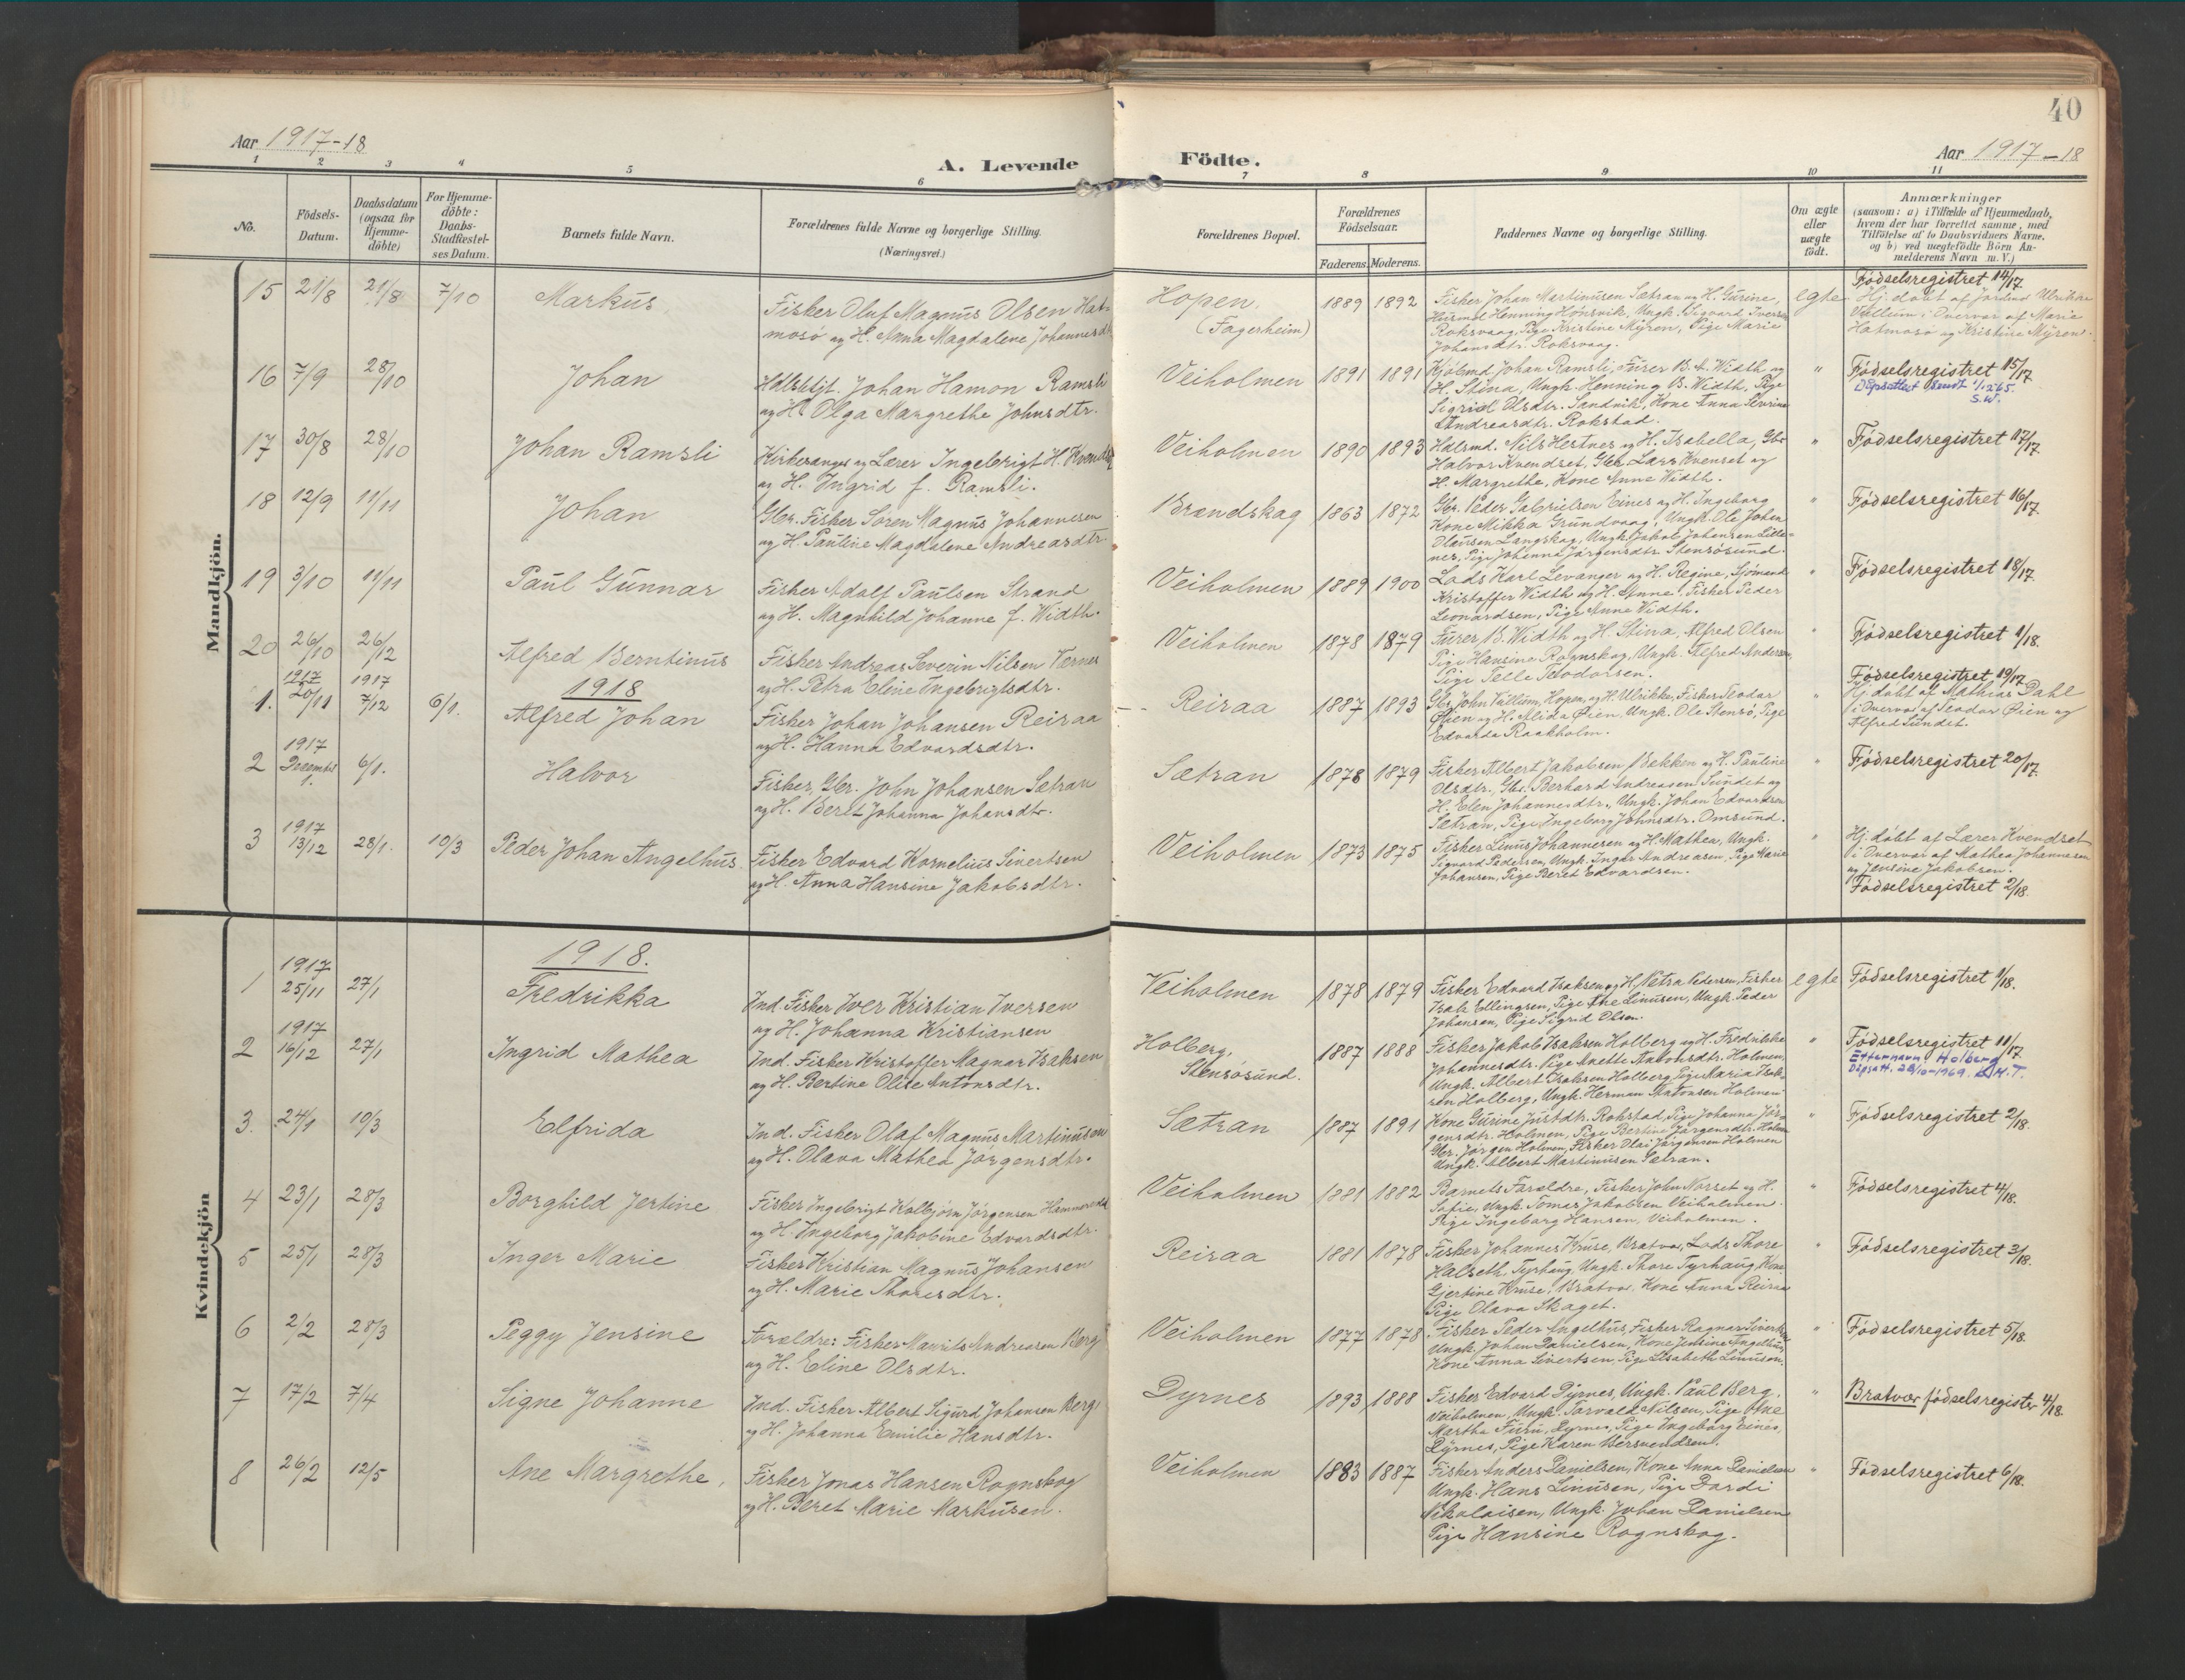 40
Aar 1917-18
A. Levende
Födte.
Aar 1917-18
1 2 3 4 5 6 7 8 9 10 11
No.
Födsels-
Datum.
Daabsdatum
(ogsaa for
Hjemme-
döbte)
For Hjemme-
döbte:
Daabs-
Stadfæstel-
ses Datum.
Barnets fulde Navn.
Forældrenes fulde Navne og borgerlige Stilling.
(Næringsvei.)
Forældrenes Bopæl.
Forældrenes
Födselsaar.
Faderens. Moderens.
Faddernes Navne og borgerlige Stilling.
Om ægte
eller
uægte
födt.
Anmærkninger
(saasom: a) i Tilfælde af Hjemmedaab,
hvem der har forrettet samme, med
Tilföielse af to Daabsvidners Navne.
og b) ved uægtefödte Börn An-
melderens Navn m. V.)
Mandkjön.
15 21/8 21/8 7/10 Markus
Fisker Oluf Magnus Olsen Hat-
mosø og H. Anna Magdalene Johannesdtr.
Hopen.
(Fagerheim)
1889 1892
Fisker Johan Martinusen Sætran og H. Gurine,
Husmd Henning Hønsvik, Ungk. Sigvard Iversen
Roksvaag, Pige Kristine Myren, Pige Marie
Johansdtr. Roksvaag.
egte
Fødselsregistret 14/17.
Hj. døbt af Jordmd Ulrikke
Vullum i Overvær af Marie
Hatmosø og Kristine Myren.
16 7/9 28/10 Johan
Hdlsbtjt. Johan Hamon Ramsli
og H. Olga Margrethe Johnsdtr.
Veiholmen 1891 1891
Kjøbmd. Johan Ramsli, Furer B. A. Width og
H. Stina, Ungk. Henning B. Width, Pige
Sigrid Olsdtr. Sandvik, Kone Anna Severine
Andreasdtr. Rokstad.
"
Fødselsregistret 15/17.
Dåpsattest sendt 1/12 65.
S.W.
17 30/8 28/10 Johan Ramsli
Kirkesanger og Lærer Ingebrigt H. Kvendset
og H. Ingrid f. Ramsli.
Veiholmen 1890 1893
Hdlsmd. Nils Hestnes og H. Isabella, Gbr
Halvor Kvendset, Gbr. Lars Kvenset og
H. Margrethe, Kone Anne Width.
"
Fødselsregistret 17/17.
18 12/9 11/11 Johan
Gbr. Fisker Søren Magnus Johannesen
og H. Pauline Magdalene Andreasdtr.
Brændskag 1863 1872
Gbr. Peder Gabrielsen Eines og H. Ingeborg
Kone Mikka Grundvaag, Ungk. Ole Johan
Olausen Langskag, Ungk. Jakob Johansen Lille-
nes, Pige Johanna Jørgensdtr. Stensøsund.
"
Fødselsregistret 16/17.
19 3/10 11/11 Paul Gunnar
Fisker Adolf Paulsen Strand
og H. Magnhild Johanne f. Width.
Veiholmen 1889 1900
Lods Karl Levanger og H. Regine, Sjømand
Kristoffer Width og H. Anne, Fisker Peder
Leonardsen, Pige Anne Width.
"
Fødselsregistret 18/17.
20 26/10 26/12 Alfred Berntinus
Fisker Andreas Severin Nilsen Værnes
og H. Petra Eline Ingebrigtsdtr.
Veiholmen 1878 1879
Furer B. Width og H. Stina, Alfred Olsen
Pige Hansine Rognskog, Ungk. Alfred Andersen
Pige Telle Teodorsen.
"
Fødselsregistret 1/18.
1918
1. 1917 20/11 1917 7/12 6/1. Alfred Johan
Fisker Johan Johansen Reiraa
og H. Hanna Edvardsdtr.
Reiraa 1887 1893
Gbr. John Vullum, Hopen, og H. Ulrikke, Fisker Teodor
Øien og H. Alida Øien, Ungk. Ole Stensø, Pige
Edvarda Raakholm.
"
Fødselsregistret 19/17.
Hj. døbt af Mathias Dahl
i Overvær af Teodor Øien og
Alfred Sundet.
2 1917 December 1. 6/1. Halvor
Fisker, Gbr. John Johansen Sætran
og H. Beret Johanna Johansdtr.
Sætran 1878 1879
Fisker Albert Jakobsen Bakken og H. Pauline
Olsdtr., Gbr. Berhard Andreasen Sundet og
H. Elen Johannesdtr., Ungk. Johan Edvardsen
Sætran, Pige Ingeborg Johnsdtr. Omsund.
"
Fødselsregistret 20/17.
3 1917 13/12 28/1. 10/3 Peder Johan Angelhus
Fisker Edvard Kornelius Sivertsen
og H. Anna Hansine Jakobsdtr.
Veiholmen 1873 1875
Fisker Linus Johannesen og H. Mathea, Ungk.
Sigvard Pedersen, Ungk. Ingar Andreasen, Pige Marie
Johansen, Pige Beret Edvardsen.
"
Hj. døbt af Lærer Kvendset
i Overvær af Mathea Johannesen
og Jensine Jakobsen.
Fødselsregistret 2/18.
Kvindekjön
1918.
1 1917 25/11 27/1 Fredrikka
Ind. Fisker Iver Kristian Iversen
og H. Johanna Kristiansen
Veiholmen 1878 1879
Fisker Edvard Isaksen og H. Petra Pedersen, Fisker
Isak Ellingsen, Pige Ane Linusen, Ungk. Peder
Johansen, Pige Sigrid Olsen.
egte
Fødselsregistret 1/18.
2 1917 16/12 27/1 Ingrid Mathea
Ind. Fisker Kristoffer Magnar Isaksen
og H. Bertine Olite Antonsdtr.
Holberg,
Stensøsund.
1887 1888
Fisker Jakob Isaksen Holberg og H. Fredrikke
Johannesdtr. Pige Anette Antonsdtr. Holmen,
Ungk. Albert Isaksen Holberg, Pige Maria Isak-
sen Holberg, Ungk. Herman Antonsen Holmen
"
Fødselsregistret 11/17.
Etternavn Holberg
Dåpsatt. 28/10-1969. H.T.
3. 24/1 10/3 Elfrida
Ind. Fisker Olaf Magnus Martinusen
og H. Olava Mathea Jørgensdtr.
Sætran 1887 1891
Kone Gurine Justdtr. Rokstad, Pige Johanna Jør-
gensdtr. Holmen, Pige Bertine Jørgensdtr. Holmen
Gbr. Jørgen Holmen, Fisker Olai Jørgensen Holmen
Ungk. Albert Martinusen Sætran.
"
Fødselsregistret 2/18.
4 23/1 28/3 Borghild Jertine
Fisker Ingebrigt Kolbjørn Jørgensen
og H. Ingeborg Jakobine Edvardsdtr.
Veiholmen 1881 1882
Barnets Forældre, Fisker John Norset og H.
Sofie, Ungk. Tomas Jakobsen Veiholmen.
Pige Ingeborg Hansen, Veiholmen.
"
Fødselsregistret 4/18.
5 25/1 28/3 Inger Marie
Fisker Kristian Magnus Johansen
og H. Marie Thoresdtr.
Reiraa 1881 1878
Fisker Johannes Kruse, Bratvær, Lods Thore
Halseth Tyrhaug, Ungk. Thore Tyrhaug, Kone
Gjertine Kruse, Bratvær. Kone Anna Reiraa
Pige Olava Skaget.
"
Fødselsregistret 3/18.
6 2/2 28/3 Peggy Jensine
Forældre: Fisker Maurits Andreasen Berg
og H. Eline Olsdtr.
Veiholmen 1877 1878
Fisker Peder Angelhus, Fisker Ragnar Sivertsen
Ungk. Johan Danielsen, Kone Jensine Angelhus,
Kone Anna Sivertsen, Pige Elsabeth Linusen.
"
Fødselsregistret 5/18.
7 17/2 7/4 Signe Johanne
Ind. Fisker Albert Sigurd Johansen Berg
og H. Johanna Emilie Hansdtr.
Dyrnes 1893 1888
Fisker Edvard Dyrnes, Ungk. Paul Berg,
Veiholmen, Ungk. Torvald Nilsen, Pige Ane
Martha Furu, Dyrnes, Pige Ingeborg Eines,
Dyrnes, Pige Karen Bersvendsen.
"
Bratvær fødselsregister 4/18.
8 26/2 12/5 Ane Margrethe,
Fisker Jonas Hansen Rognskog
og H. Beret Marie Markusen.
Veiholmen 1883 1887
Fisker Anders Danielsen, Kone Anna Danielsen
Ungk. Hans Linusen, Pige Bordi
Nikolaisen, Ungk. Johan Danielsen
Pige Hansine Rognskog.
"
Fødselsregistret 6/18.